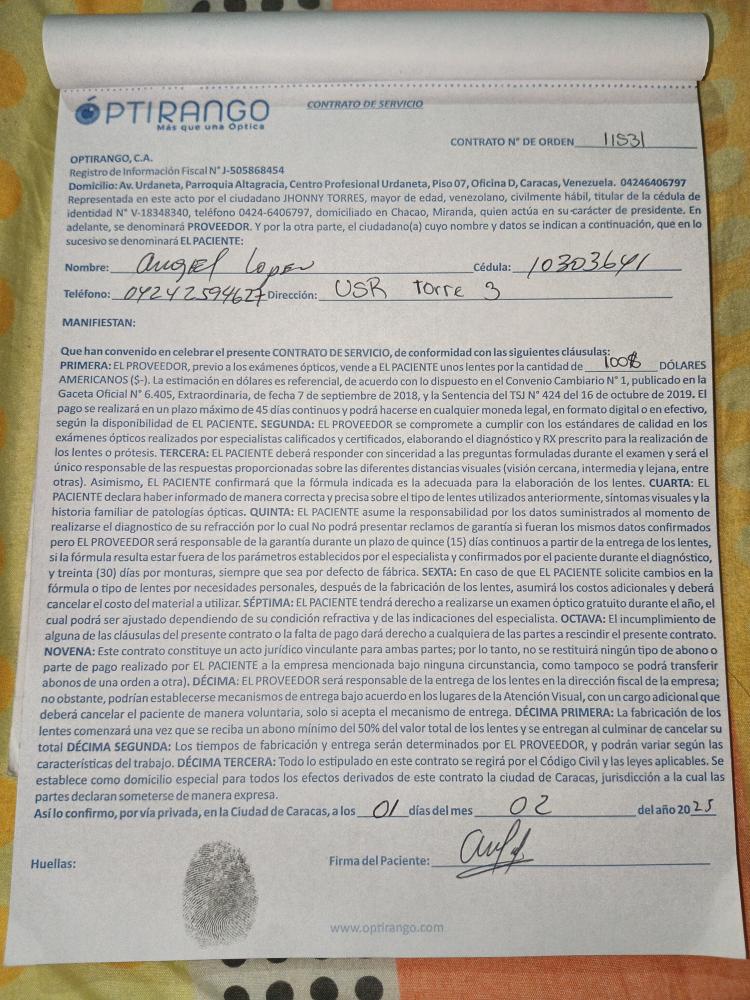 ÓPTIRANGO
Más que una Óptica
CONTRATO DE SERVICIO
CONTRATO N° DE ORDEN 11531
OPTIRANGO, C.A.
Registro de Información Fiscal N° J-505868454
Domicilio: Av. Urdaneta, Parroquia Altagracia, Centro Profesional Urdaneta, Piso 07, Oficina D, Caracas, Venezuela. 04246406797
Representada en este acto por el ciudadano JHONNY TORRES, mayor de edad, venezolano, civilmente hábil, titular de la cédula de
identidad N° V-18348340, teléfono 0424-6406797, domiciliado en Chacao, Miranda, quien actúa en su carácter de presidente. En
adelante, se denominará PROVEEDOR. Y por la otra parte, el ciudadano(a) cuyo nombre y datos se indican a continuación, que en lo
sucesivo se denominará EL PACIENTE:
Nombre: Angel Lopez Cédula: 10303641
Teléfono: 04242594627 Dirección: USR Torre 3
MANIFIESTAN:
Que han convenido en celebrar el presente CONTRATO DE SERVICIO, de conformidad con las siguientes cláusulas:
PRIMERA: EL PROVEEDOR, previo a los exámenes ópticos, vende a EL PACIENTE unos lentes por la cantidad de 100$ DÓLARES
AMERICANOS ($-). La estimación en dólares es referencial, de acuerdo con lo dispuesto en el Convenio Cambiario N° 1, publicado en la
Gaceta Oficial N° 6.405, Extraordinaria, de fecha 7 de septiembre de 2018, y la Sentencia del TSJ N° 424 del 16 de octubre de 2019. El
pago se realizará en un plazo máximo de 45 días continuos y podrá hacerse en cualquier moneda legal, en formato digital o en efectivo,
según la disponibilidad de EL PACIENTE. SEGUNDA: EL PROVEEDOR se compromete a cumplir con los estándares de calidad en los
exámenes ópticos realizados por especialistas calificados y certificados, elaborando el diagnóstico y RX prescrito para la realización de
los lentes o prótesis. TERCERA: EL PACIENTE deberá responder con sinceridad a las preguntas formuladas durante el examen y será el
único responsable de las respuestas proporcionadas sobre las diferentes distancias visuales (visión cercana, intermedia y lejana, entre
otras). Asimismo, EL PACIENTE confirmará que la fórmula indicada es la adecuada para la elaboración de los lentes. CUARTA: EL
PACIENTE declara haber informado de manera correcta y precisa sobre el tipo de lentes utilizados anteriormente, síntomas visuales y la
historia familiar de patologías ópticas. QUINTA: EL PACIENTE asume la responsabilidad por los datos suministrados al momento de
realizarse el diagnostico de su refracción por lo cual No podrá presentar reclamos de garantía si fueran los mismos datos confirmados
pero EL PROVEEDOR será responsable de la garantía durante un plazo de quince (15) días continuos a partir de la entrega de los lentes,
si la fórmula resulta estar fuera de los parámetros establecidos por el especialista y confirmados por el paciente durante el diagnóstico,
y treinta (30) días por monturas, siempre que sea por defecto de fábrica. SEXTA: En caso de que EL PACIENTE solicite cambios en la
fórmula o tipo de lentes por necesidades personales, después de la fabricación de los lentes, asumirá los costos adicionales y deberá
cancelar el costo del material a utilizar. SÉPTIMA: EL PACIENTE tendrá derecho a realizarse un examen óptico gratuito durante el año, el
cual podrá ser ajustado dependiendo de su condición refractiva y de las indicaciones del especialista. OCTAVA: El incumplimiento de
alguna de las cláusulas del presente contrato o la falta de pago dará derecho a cualquiera de las partes a rescindir el presente contrato.
NOVENA: Este contrato constituye un acto jurídico vinculante para ambas partes; por lo tanto, no se restituirá ningún tipo de abono o
parte de pago realizado por EL PACIENTE a la empresa mencionada bajo ninguna circunstancia, como tampoco se podrá transferir
abonos de una orden a otra). DÉCIMA: EL PROVEEDOR será responsable de la entrega de los lentes en la dirección fiscal de la empresa;
no obstante, podrían establecerse mecanismos de entrega bajo acuerdo en los lugares de la Atención Visual, con un cargo adicional que
deberá cancelar el paciente de manera voluntaria, solo si acepta el mecanismo de entrega. DÉCIMA PRIMERA: La fabricación de los
lentes comenzará una vez que se reciba un abono mínimo del 50% del valor total de los lentes y se entregan al culminar de cancelar su
total DÉCIMA SEGUNDA: Los tiempos de fabricación y entrega serán determinados por EL PROVEEDOR, y podrán variar según las
características del trabajo. DÉCIMA TERCERA: Todo lo estipulado en este contrato se regirá por el Código Civil y las leyes aplicables. Se
establece como domicilio especial para todos los efectos derivados de este contrato la ciudad de Caracas, jurisdicción a la cual las
partes declaran someterse de manera expresa.
Así lo confirmo, por vía privada, en la Ciudad de Caracas, a los 01 días del mes 02 del año 2025
Huellas:
Firma del Paciente:
www.optirango.com